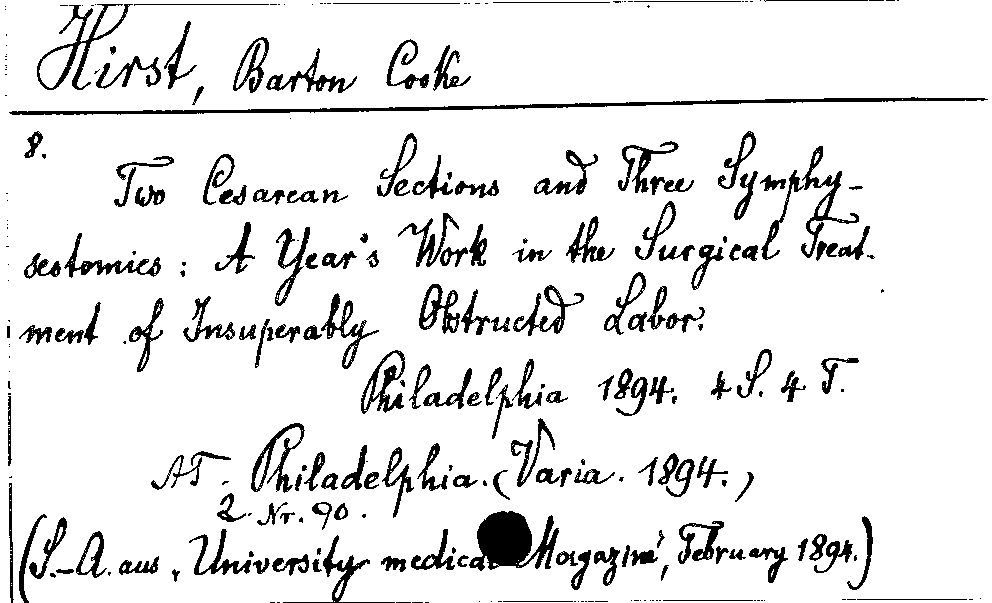 Hirst, Barton Cooke
8.
Two Cesarean Sections and Three Symphy-
seotomies: A Year's Work in the Surgical Treat-
ment of Insuperably Obstructed Labor.
Philadelphia 1894. 4 S. 4 T.
AT. Philadelphia. (Varia. 1894.)
2 Nr. 90.
(S.-A. aus „University medical Magazine“, February 1894.)